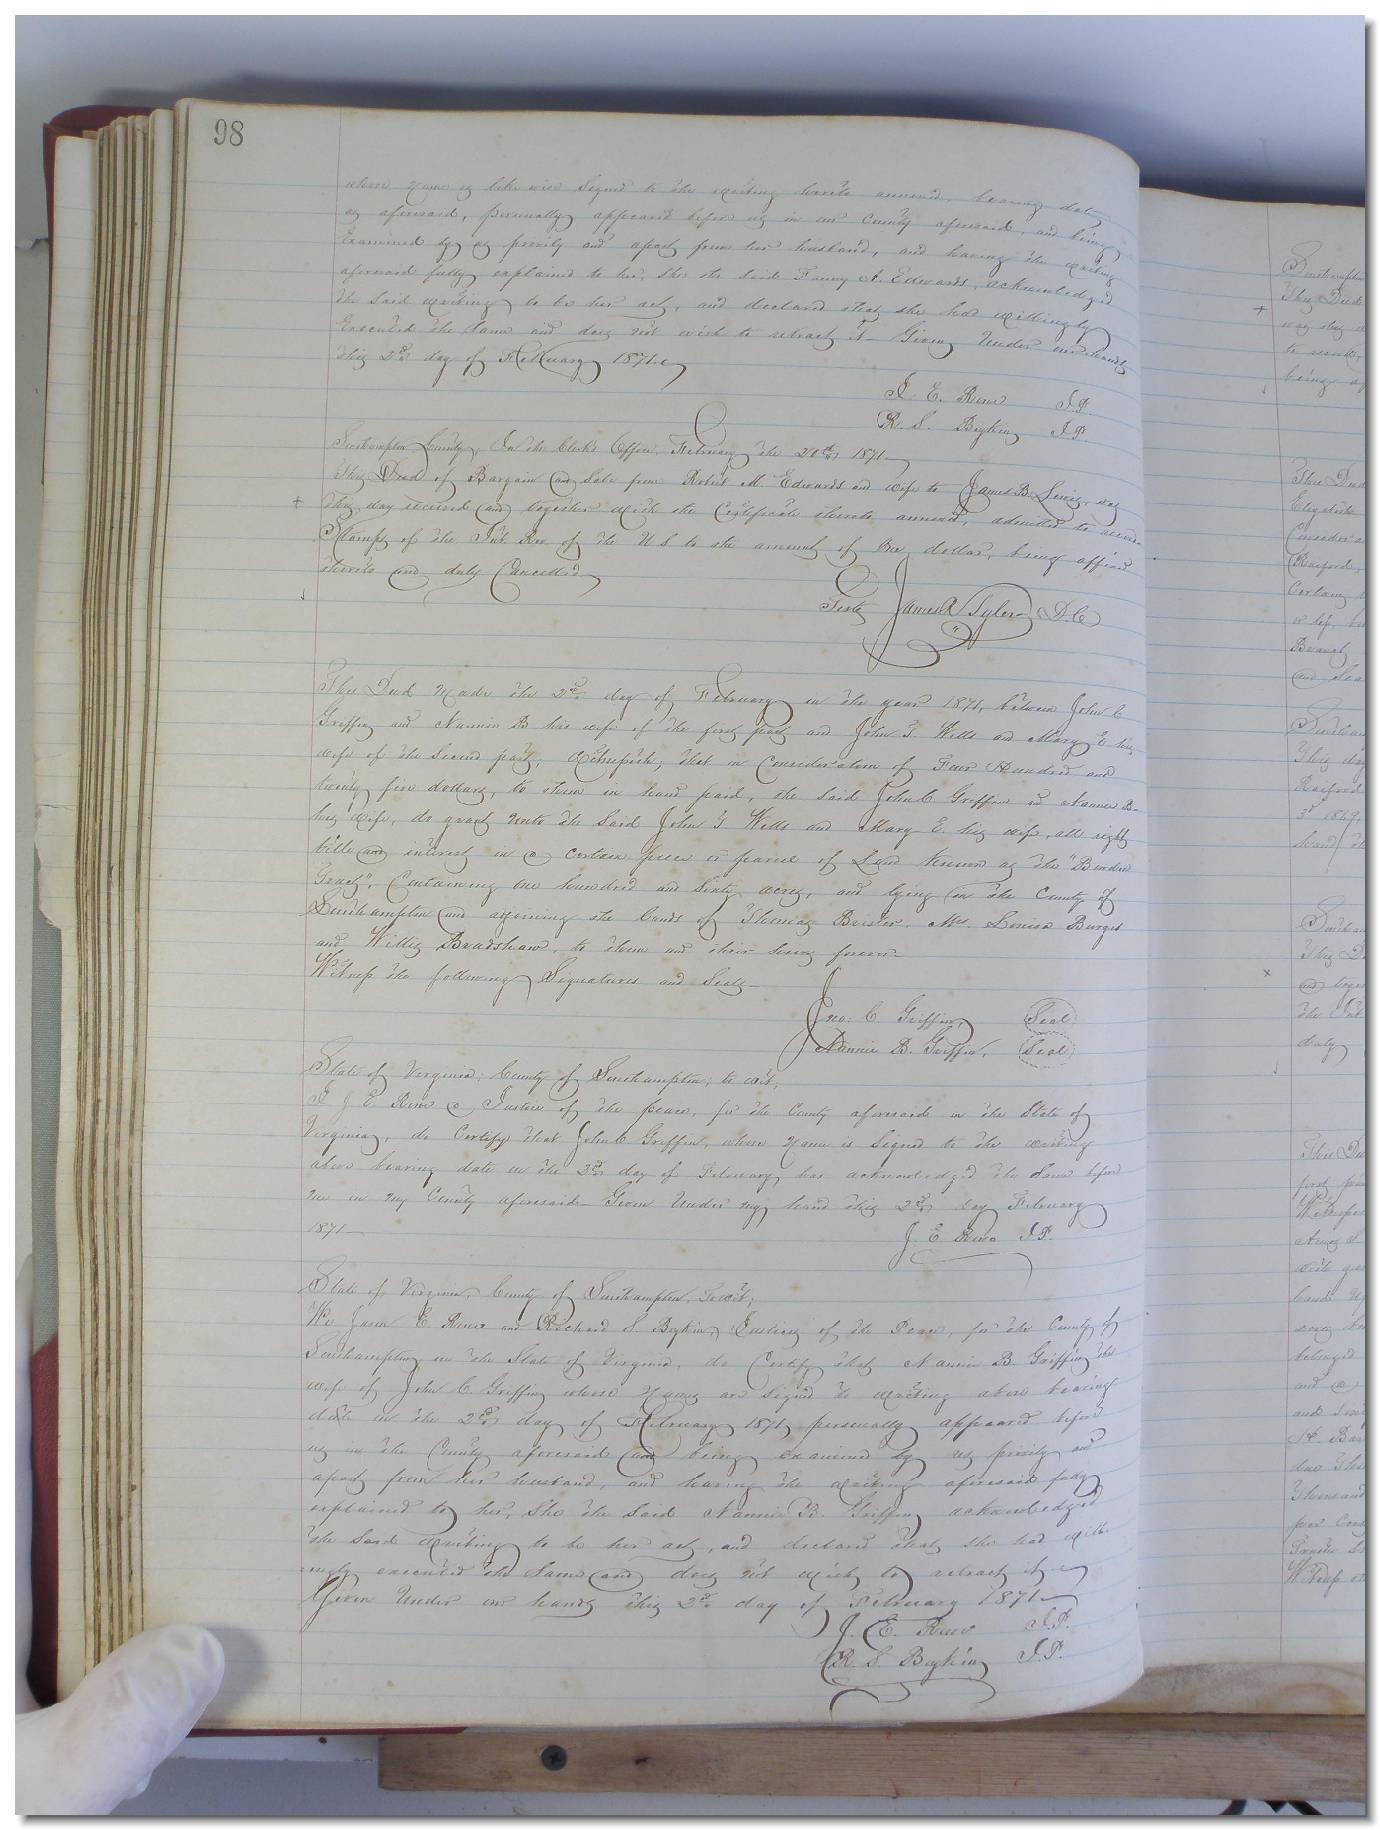 98
whose name is like wise Signed to the writing hereto annexed, bearing date
as aforesaid, personally appeared before us in our County aforesaid, and being
Examined by us privily and apart from her husband, and having the writing
aforesaid fully explained to her, She the Said Fanny A. Edwards, acknowledged
the Said writing to be her act, and declared that she had willingly
Executed the Same and does not wish to retract it — Given Under our hands
this 2nd day of February 1871.
J. E. J.P.
R. S. Boykin J.P.
Southampton County, In the Clerk's Office, February the 20th 1871.
This Deed of Bargain and Sale from Robert M. Edwards and wife to James B. was
+ this day received and together with the Certificate thereto annexed, admitted to record
Stamps of the Int. Rev. of the U S to the amount of One dollar, being affixed
thereto and duly Cancelled
Teste James Tyler D.C
This Deed Made the 2nd day of February in the year 1871, between John C
Griffin and Nannie B his wife of the first part and John T. Wells and Mary E his
wife of the Second part, Witnesseth, that in Consideration of Four Hundred and
twenty five dollars, to them in hand paid, the Said John C Griffin and Nannie B
his wife, do grant unto the Said John T Wells and Mary E. his wife, all right
title and interest in a certain piece or parcel of Land Known as the
Tract", Containing one hundred and Sixty acres, and lying in the County of
Southampton and adjoining the lands of Thomas Mrs. Louisa Burges
and Willis Bradshaw, to them and their heirs forever
Witness the following Signatures and Seals —
Jno. C Griffin, Seal
Nannie B. Griffin, Seal
State of Virginia, County of Southampton, to wit,
I J E a Justice of the peace, for the County aforesaid in the State of
Virginia, do Certify that John C Griffin, whose Name is Signed to the writing
above bearing date on the 2nd day of February has acknowledged the Same before
me in my County aforesaid — Given Under my hand this 2nd day February
1871 — J. E J.P.
State of Virginia, County of Southampton, Towit,
We E. and Richard S. Boykin, Justices of the Peace, for the County of
Southampton in the State of Virginia, do Certify that Nannie B. Griffin the
wife of John C Griffin whose Names are Signed to writing above bearing
date on the 2nd day of February 1871 personally appeared before
us in the County aforesaid and being examined by us privily and
apart from her husband, and having the writing aforesaid fully
explained to her, She the Said Nannie B. Griffin acknowledged
the Said writing to be her act, and declared that she had will-
ingly executed the Same and does not wish to retract it —
Given Under our hands this 2nd day of February 1871 —
J. E. J.P.
R. S. Boykin J.P.
Southampton
+ This Deed
was day
to record,
being
This Deed
Elizabeth
Consider
Certain
Branch
This day
3d 1869,
hand
x
and
the Int
duly
This De
first
with
and
and
Thousand
Witness